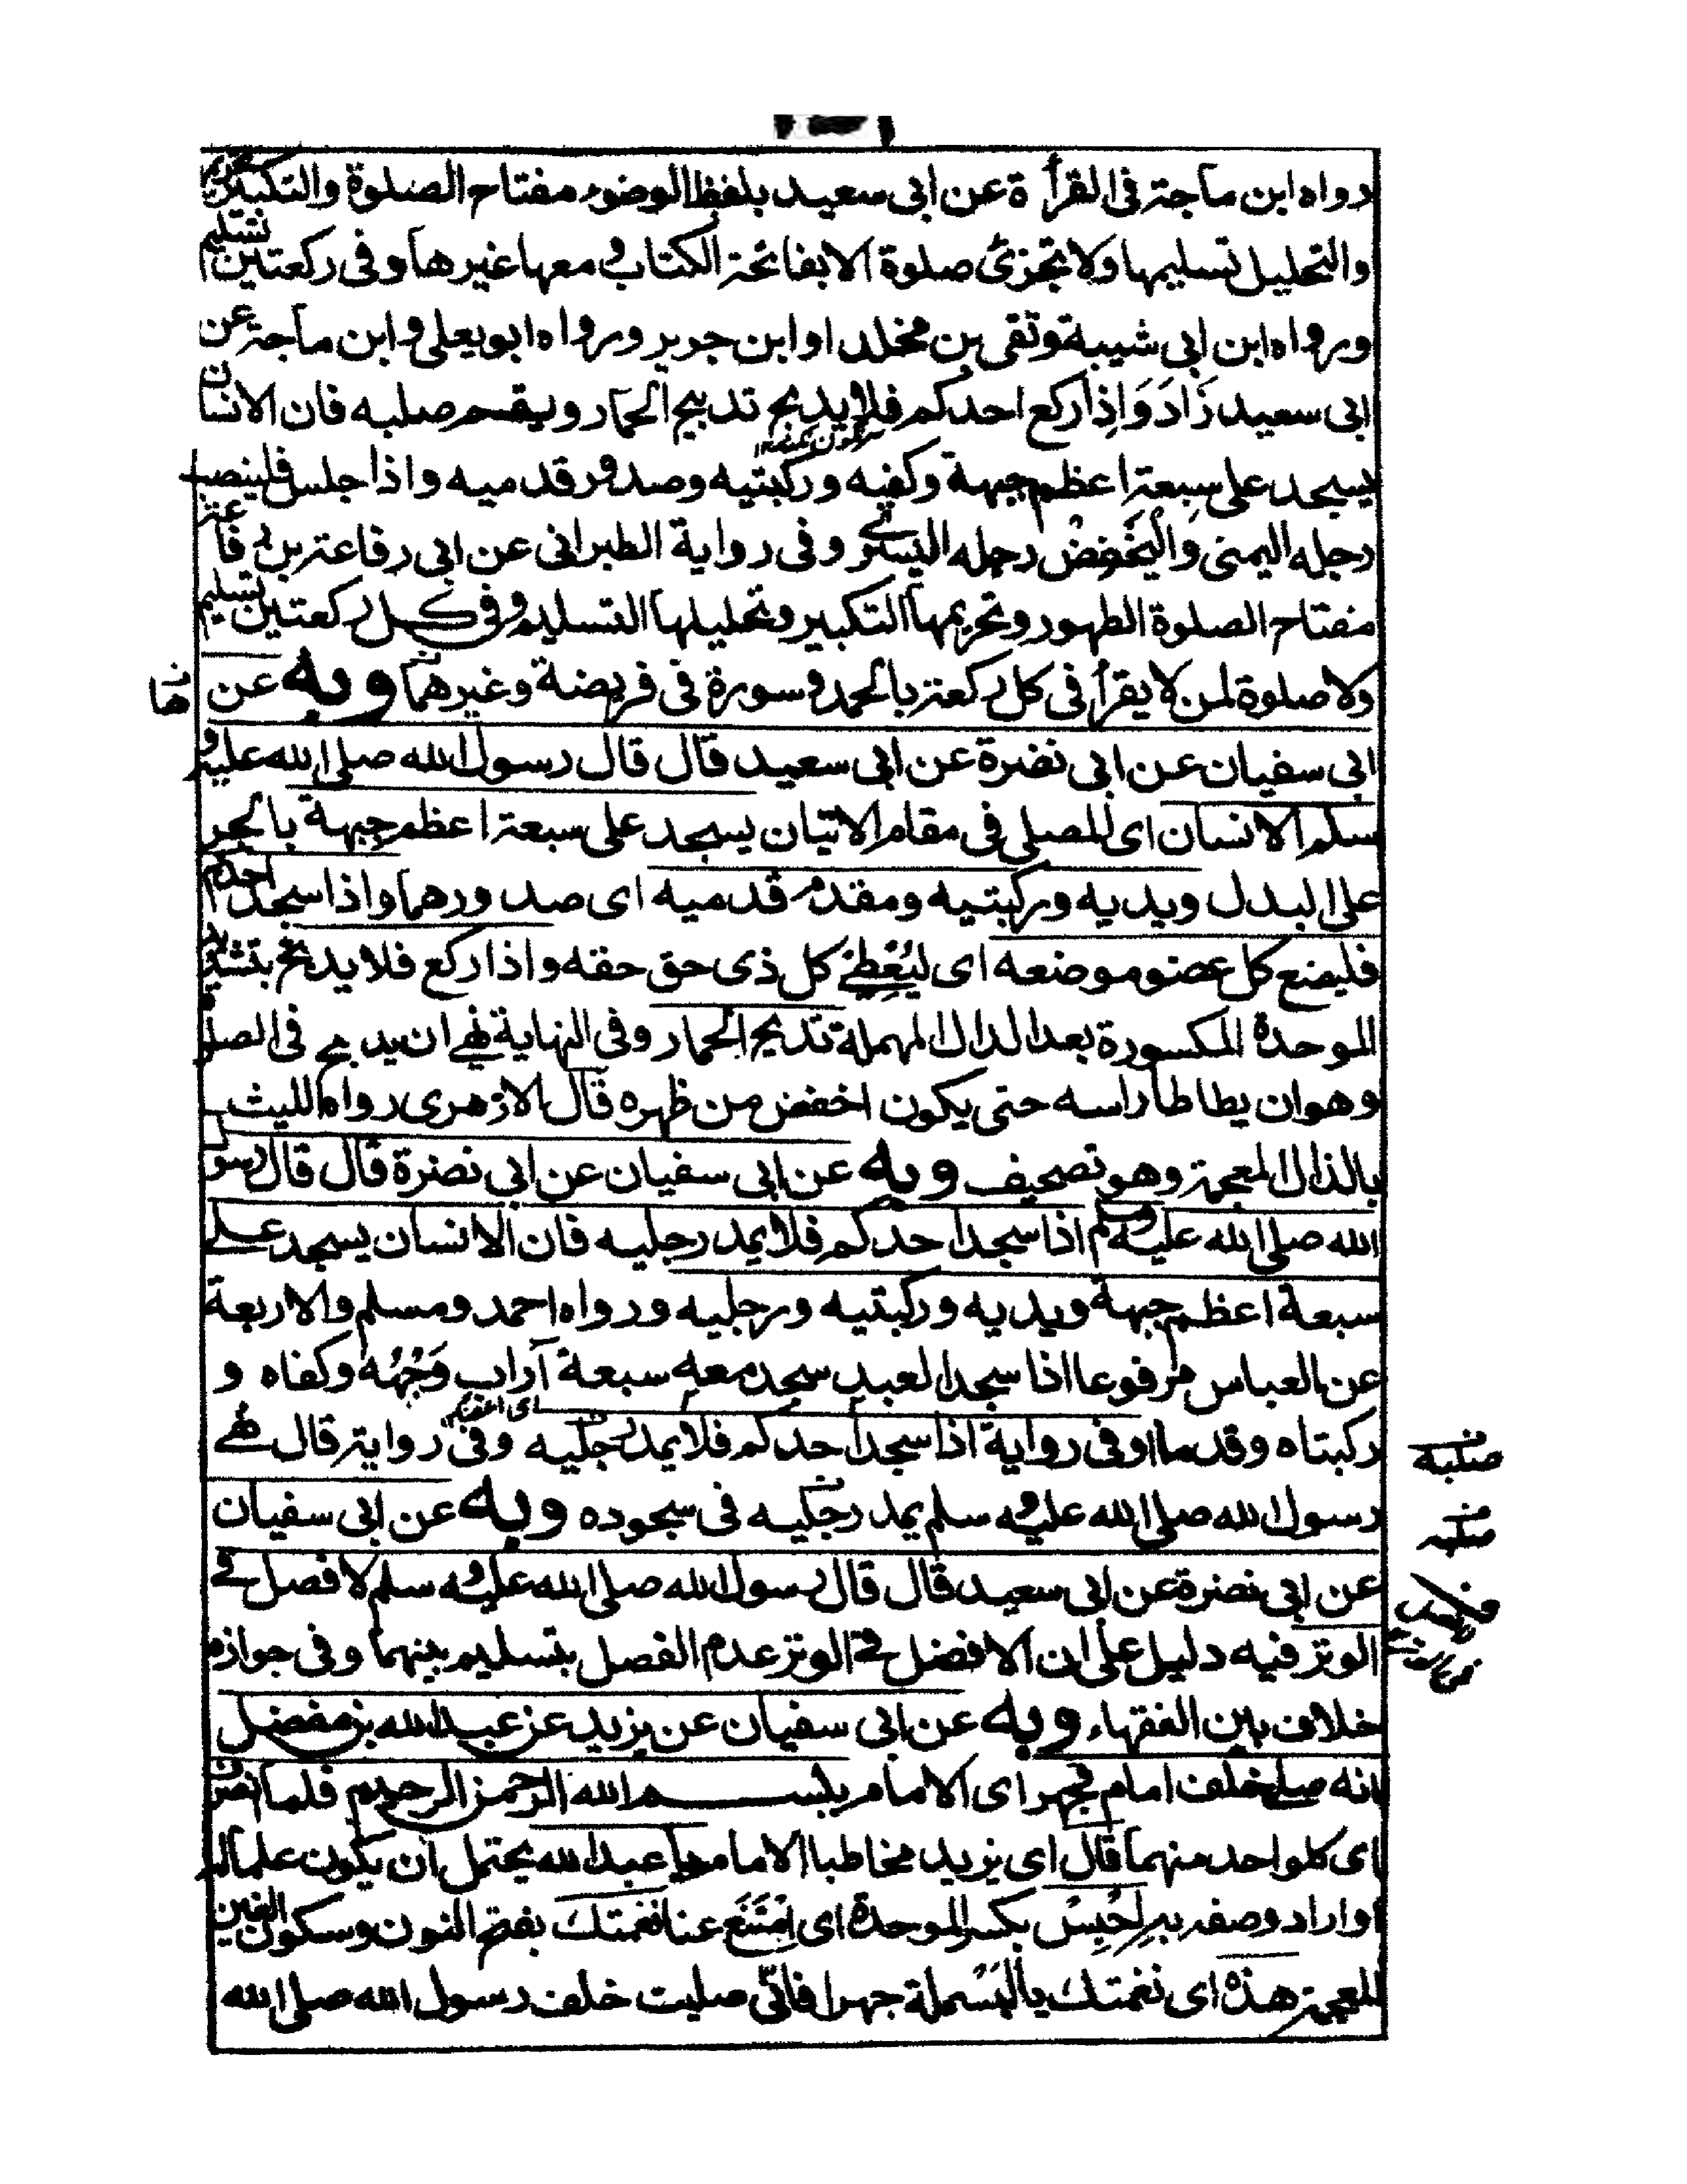 رواه ابن ماجة فى القرأة عن ابى سعيد بلفظ الوضوء مفتاح الصلوة والتكبير تحريم
والتحليل تسليمها ولا تجزئ صلوة الا بفاتحة الكتاب و معها غيرها و فى ركعتين تسليم
ورواه ابن ابى شيبة وتقى بن مخلد او ابن جرير ورواه ابو يعلى و ابن ماجة عن
ابى سعيد زَادَ وَاِذا ركع احدكم فلا يدبح تدبيح الحمار و ليقم صلبه فان الانسان
يسجد على سبعة اعظم جبهة وكفيه وركبتيه وصدور قدميه واذا جلس فلينصب
رجله اليمنى وَاليَخْفِضْ رجله اليسرى و فى رواية الطبرانى عن ابى رفاعة بن
مفتاح الصلوة الطهور وتحريمها التكبير وتحليلها التسليم و فى كل ركعتين تسليم
ولا صلوة لمن لا يقرأ فى كل ركعة بالحمد و سورة فى فريضة و غيرهما وبه عن
ابى سفيان عن ابى نضرة عن ابى سعيد قال قال رسول الله صلى الله عليه و
سلم الانسان اى المصلى فى مقام الاتيان يسجد على سبعة اعظم جبهة بالجر
على البدل ويديه وركبتيه ومقدم قدميه اى صدورهما واذا سجد احدكم
فليضع كل عضو موضعه اى ليُعْطِىْ كل ذى حق حقه واذا ركع فلا يدبح بتشديد
الموحدة المكسورة بعد الدال المهملة تدبيح الحمار وفى النهاية نهى ان يدبح فى الصلو
وهو ان يطاطأ راسه حتى يكون اخفض من ظهره قال الازهرى رواه الليث
بالذال المعجمة وهو تصحيف وبه عن ابى سفيان عن ابى نضرة قال قال رسول
الله صلى الله عليه وسلم اذا سجد احدكم فلا يمد رجليه فان الانسان يسجد على
سبعة اعظم جبهة ويديه وركبتيه ورجليه ورواه احمد ومسلم والاربعة
عن العباس مرفوعا اذا سجد العبد سجد معه سبعة آراب وَجْهُهُ وكفاه و
اى اعضاء
ركبتاه وقدماه وفى رواية اذا سجد احدكم فلا يمد رجليه وفى رواية قال نهى
رسول الله صلى الله عليه و سلم يمد رجليه فى سجوده وبه عن ابى سفيان
عن ابى نضرة عن ابى سعيد قال قال رسول الله صلى الله عليه و سلم لا فصل فى
الوتر فيه دليل على ان الافضل فى الوتر عدم الفصل بتسليم بينهما و فى جوازه
خلاف بين الفقهاء وبه عن ابى سفيان عن يزيد عن عبد الله بن مفضل
انه صلى خلف امام فجهر اى الامام ببسم الله الرحمن الرحيم فلما انصرف
اى كلواحد منهما قال اى يزيد مخاطبا الامام يا عبد الله يحتمل ان يكون علما له
او اراد وصفه به اِحْبِسْ بكسر الموحدة اى اِمْتَنِعْ عنا نغمتك بفتح النون وسكون الغين
المعجمة هذه اى نغمتك بالبَسْملة جهرا فانّى صليت خلف رسول الله صلى الله
ها
صلبه
صلبه